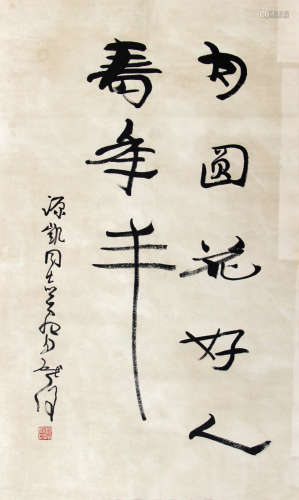 月圆花好人
寿年丰
源凯同志